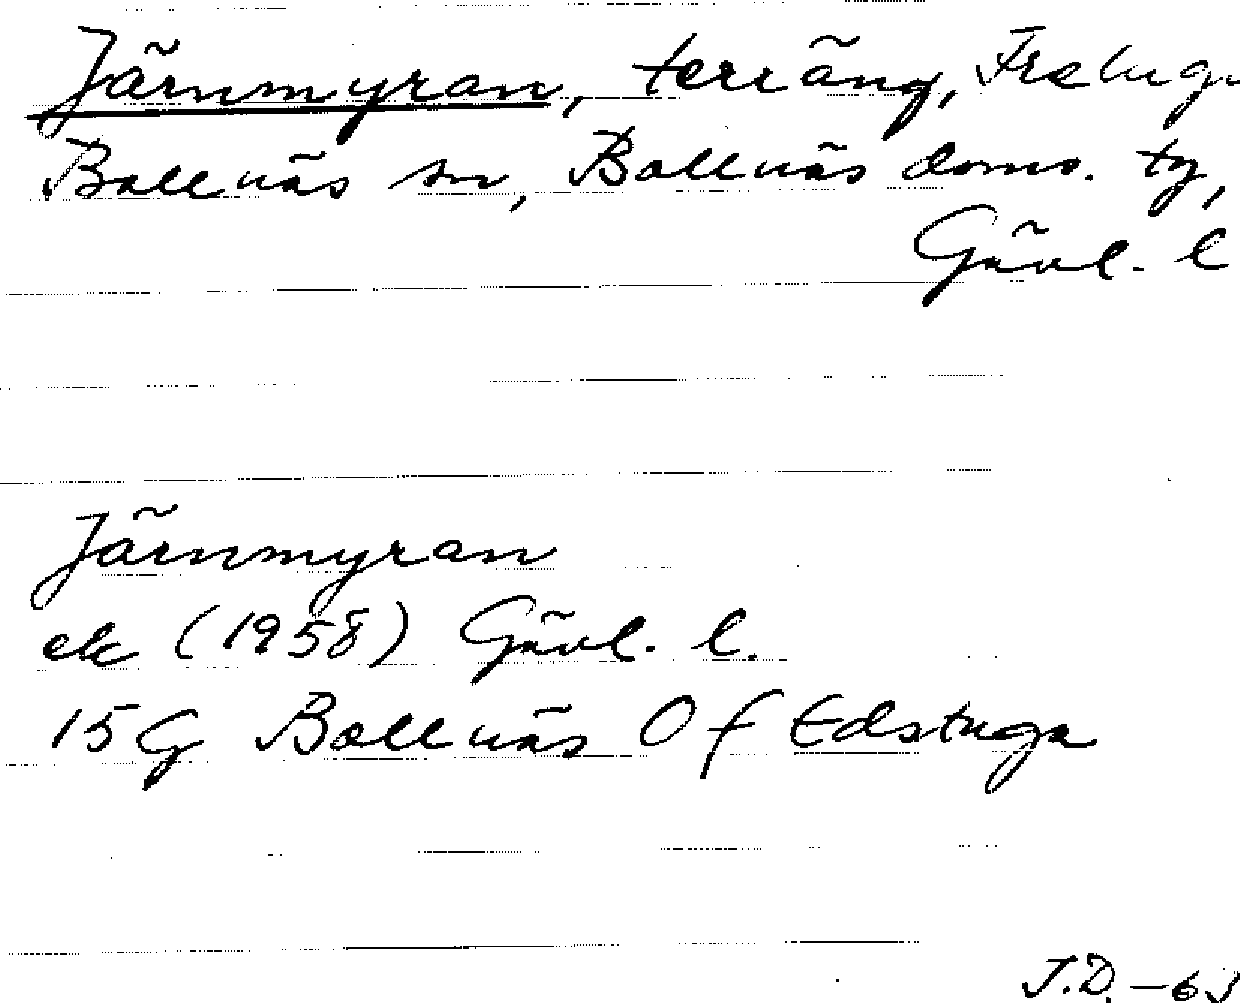 Järnmyran, terräng, Freluga
Bollnäs sn, Bollnäs doms. tg,
Gävl. l
Järnmyran
ek (1958) Gävl. l.
15G Bollnäs 0f Edstuga
J.D. - 63